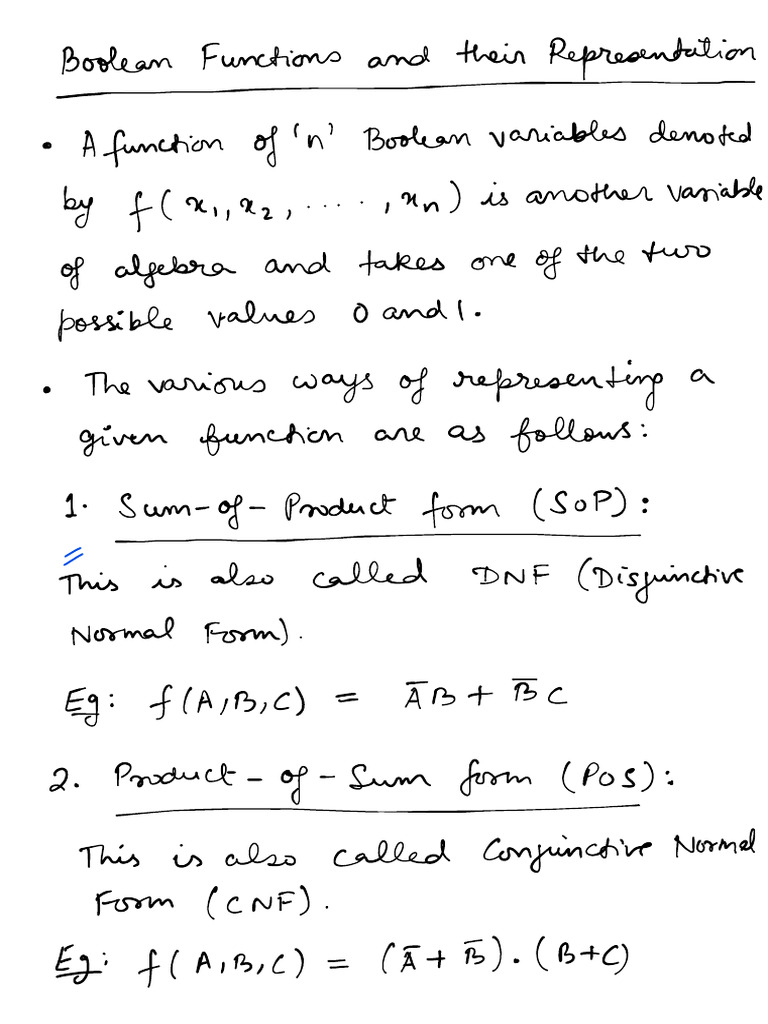 Boolean Functions and their Representation
• A function of 'n' Boolean variables denoted
by f(x₁, x₂, ....., xₙ) is another variable
of algebra and takes one of the two
possible values 0 and 1.
• The various ways of representing a
given function are as follows:
1. Sum-of-Product form (SOP):
This is also called DNF (Disjunctive
Normal Form).
Eg: f(A,B,C) = A̅B + B̅C
2. Product-of-Sum form (POS):
This is also called Conjunctive Normal
Form (CNF).
Eg: f(A,B,C) = (A̅ + B̅).(B+C)